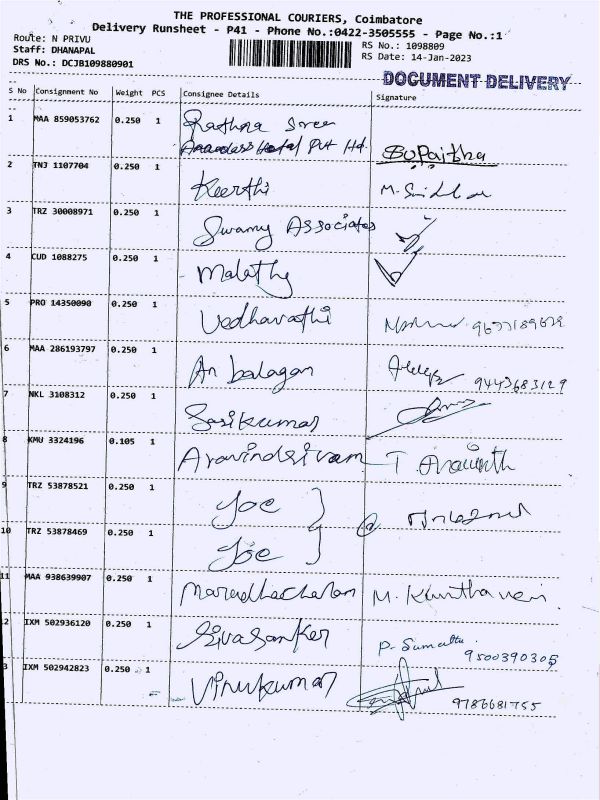 THE PROFESSIONAL COURIERS, Coimbatore
Delivery Runsheet - P41 - Phone No.:0422-3505555 - Page No.:1
Route: N PRIVU
RS No.: 1098809
Staff: DHANAPAL
RS Date: 14-Jan-2023
DRS No.: DCJB109880901
DOCUMENT DELIVERY
S No Consignment No Weight PCS Consignee Details Signature
1 MAA 859053762 0.250 1 Rathna Sree
Hotel Pvt Ltd.
2 TNJ 1107704 0.250 1 Keerthi
3 TRZ 30008971 0.250 1 Swamy Associates
4 CUD 1088275 0.250 1 Malathy
5 PRO 14350090 0.250 1 Vedhavathi
6 MAA 286193797 0.250 1 An balagan 9443683129
7 NKL 3108312 0.250 1 Sasikumar
8 KMU 3324196 0.105 1 Aravindsivam T. Aravinth
9 TRZ 53878521 0.250 1 Joe
10 TRZ 53878469 0.250 1 Joe
11 MAA 938639907 0.250 1 M.
2 IXM 502936120 0.250 1 Sivasanker P. 9500390305
3 IXM 502942823 0.250 1 9786681755